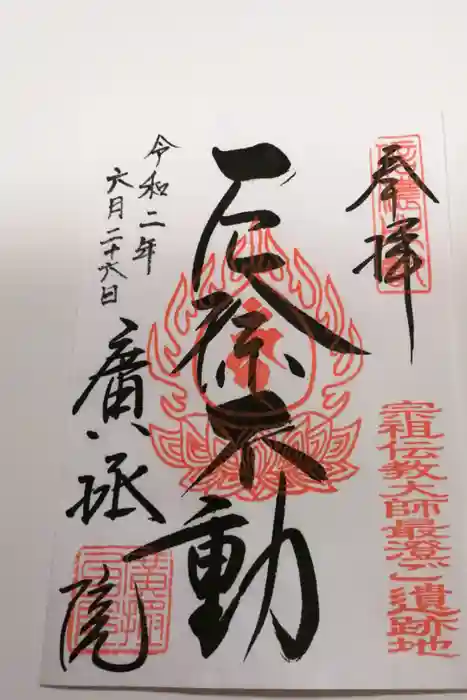 奉拝
宗祖伝教大師最澄ご遺跡地
厄除不動
令和二年
六月二十六日
廣拯院